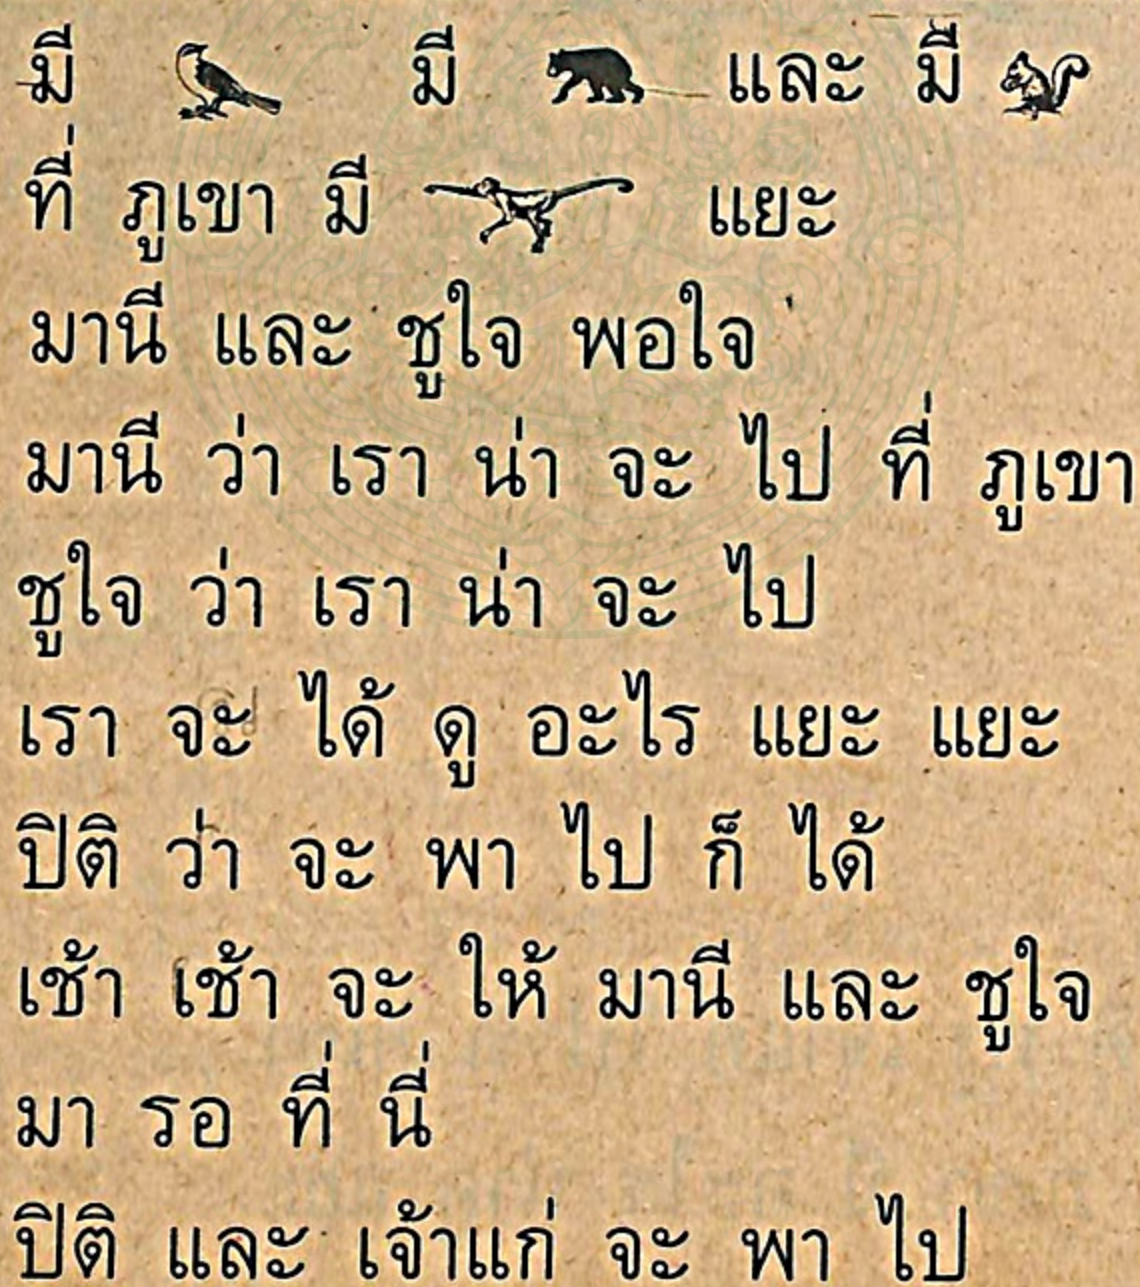 มี มี และ มี
ที่ ภูเขา มี แยะ
มานี และ ชูใจ พอใจ
มานี ว่า เรา น่า จะ ไป ที่ ภูเขา
ชูใจ ว่า เรา น่า จะ ไป
เรา จะ ได้ ดู อะไร แยะ แยะ
ปิติ ว่า จะ พา ไป ก็ ได้
เช้า เช้า จะ ให้ มานี และ ชูใจ
มา รอ ที่ นี่
ปิติ และ เจ้าแก่ จะ พา ไป